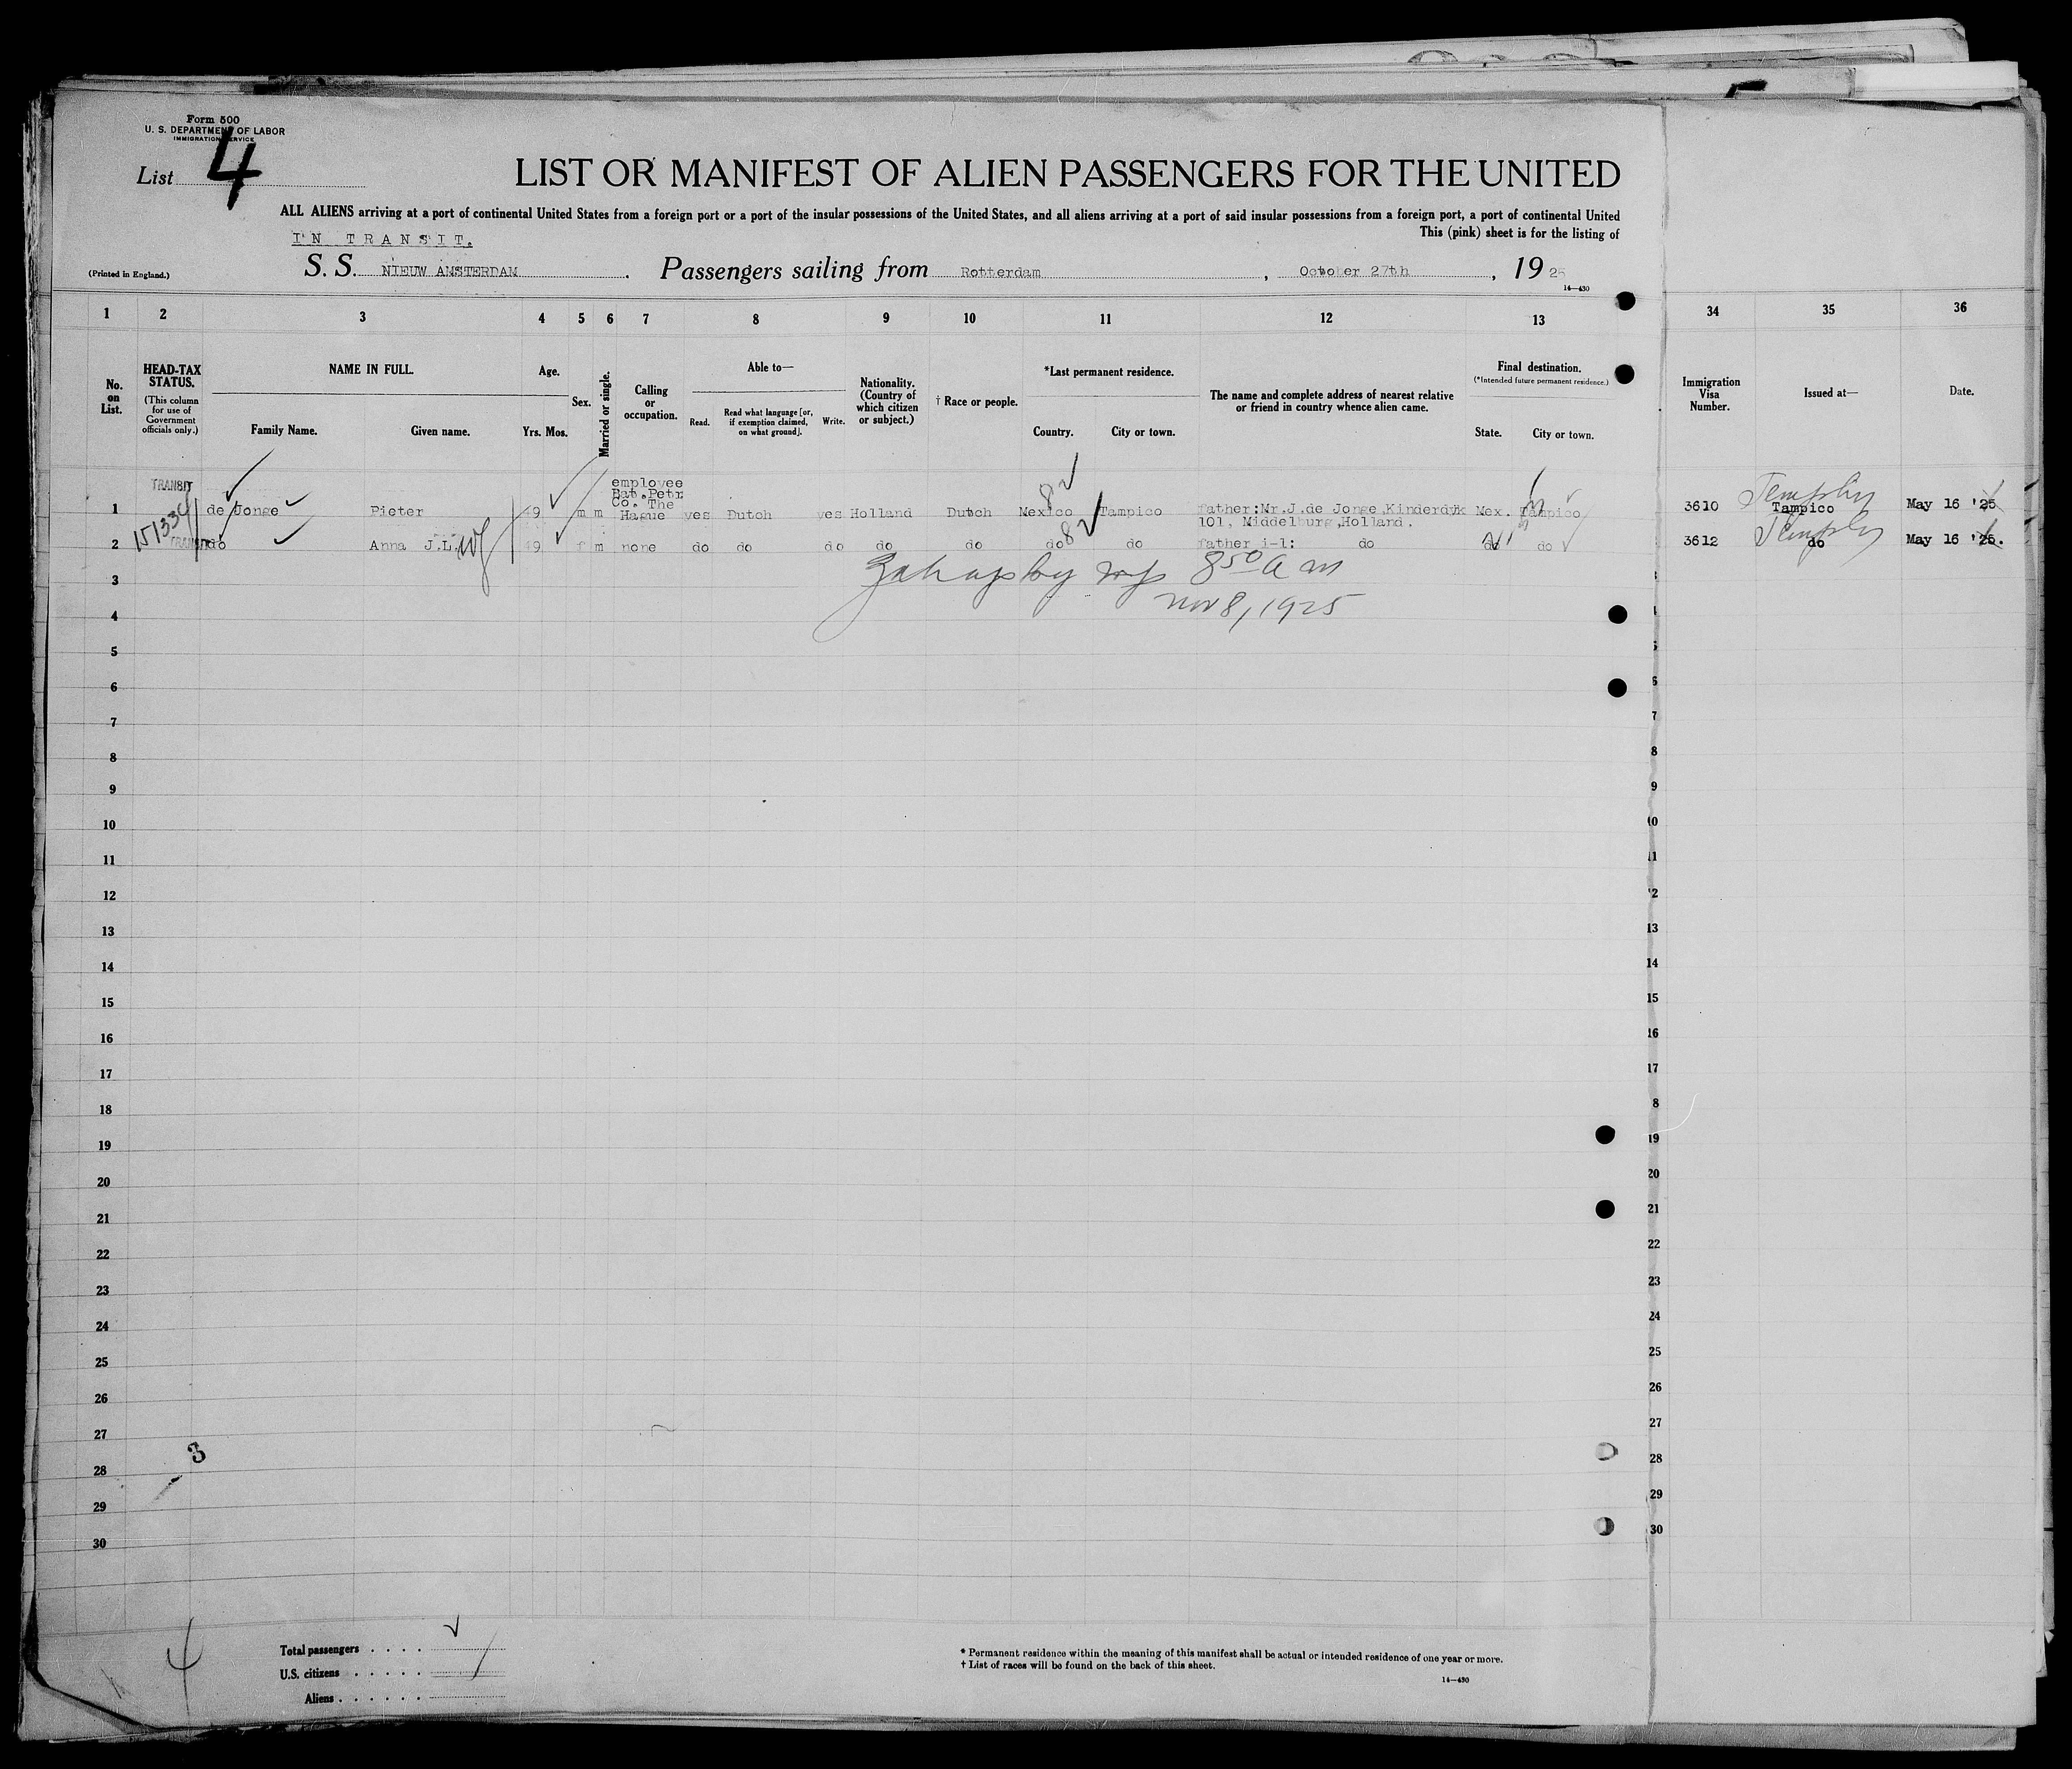 Form 500
U. S. DEPARTMENT OF LABOR
IMMIGRATION SERVICE
List 4
LIST OR MANIFEST OF ALIEN PASSENGERS FOR THE UNITED
ALL ALIENS arriving at a port of continental United States from a foreign port or a port of the insular possessions of the United States, and all aliens arriving at a port of said insular possessions from a foreign port, a port of continental United
This (pink) sheet is for the listing of
IN TRANSIT.
(Printed in England.)
S. S. NIEUW AMSTERDAM . Passengers sailing from Rotterdam , October 27th , 1925
14—430
1 2 3 4 5 6 7 8 9 10 11 12 13 34 35 36
No. on List.
HEAD-TAX STATUS.
(This column for use of Government officials only.)
NAME IN FULL.
Family Name. Given name.
Age.
Yrs. Mos.
Sex.
Married or single.
Calling or occupation.
Able to—
Read. Read what language [or, if exemption claimed, on what ground]. Write.
Nationality. (Country of which citizen or subject.)
† Race or people.
*Last permanent residence.
Country. City or town.
The name and complete address of nearest relative or friend in country whence alien came.
Final destination.
(*Intended future permanent residence.)
State. City or town.
Immigration Visa Number.
Issued at—
Date.
TRANSIT
151334
1 de Jonge Pieter 49 m m employee Bat.Petr. Co. The Hague yes Dutch yes Holland Dutch Mexico Tampico father:Mr.J.de Jonge,Kinderdyk 101, Middelburg,Holland. Mex. Tampico 3610 Tampico May 16 '25
TRANSIT
2 do Anna J.L. wf 49 f m none do do do do do do do father i-l: do do do 3612 do May 16 '25.
8 50 a m
Nov 8, 1925
3
4
5
6
7
8
9
10
11
12
13
14
15
16
17
18
19
20
21
22
23
24
25
26
27
28
29
30
3
4
Total passengers . . . .
U.S. citizens . . . . .
Aliens . . . . . .
* Permanent residence within the meaning of this manifest shall be actual or intended residence of one year or more.
† List of races will be found on the back of this sheet.
14—430